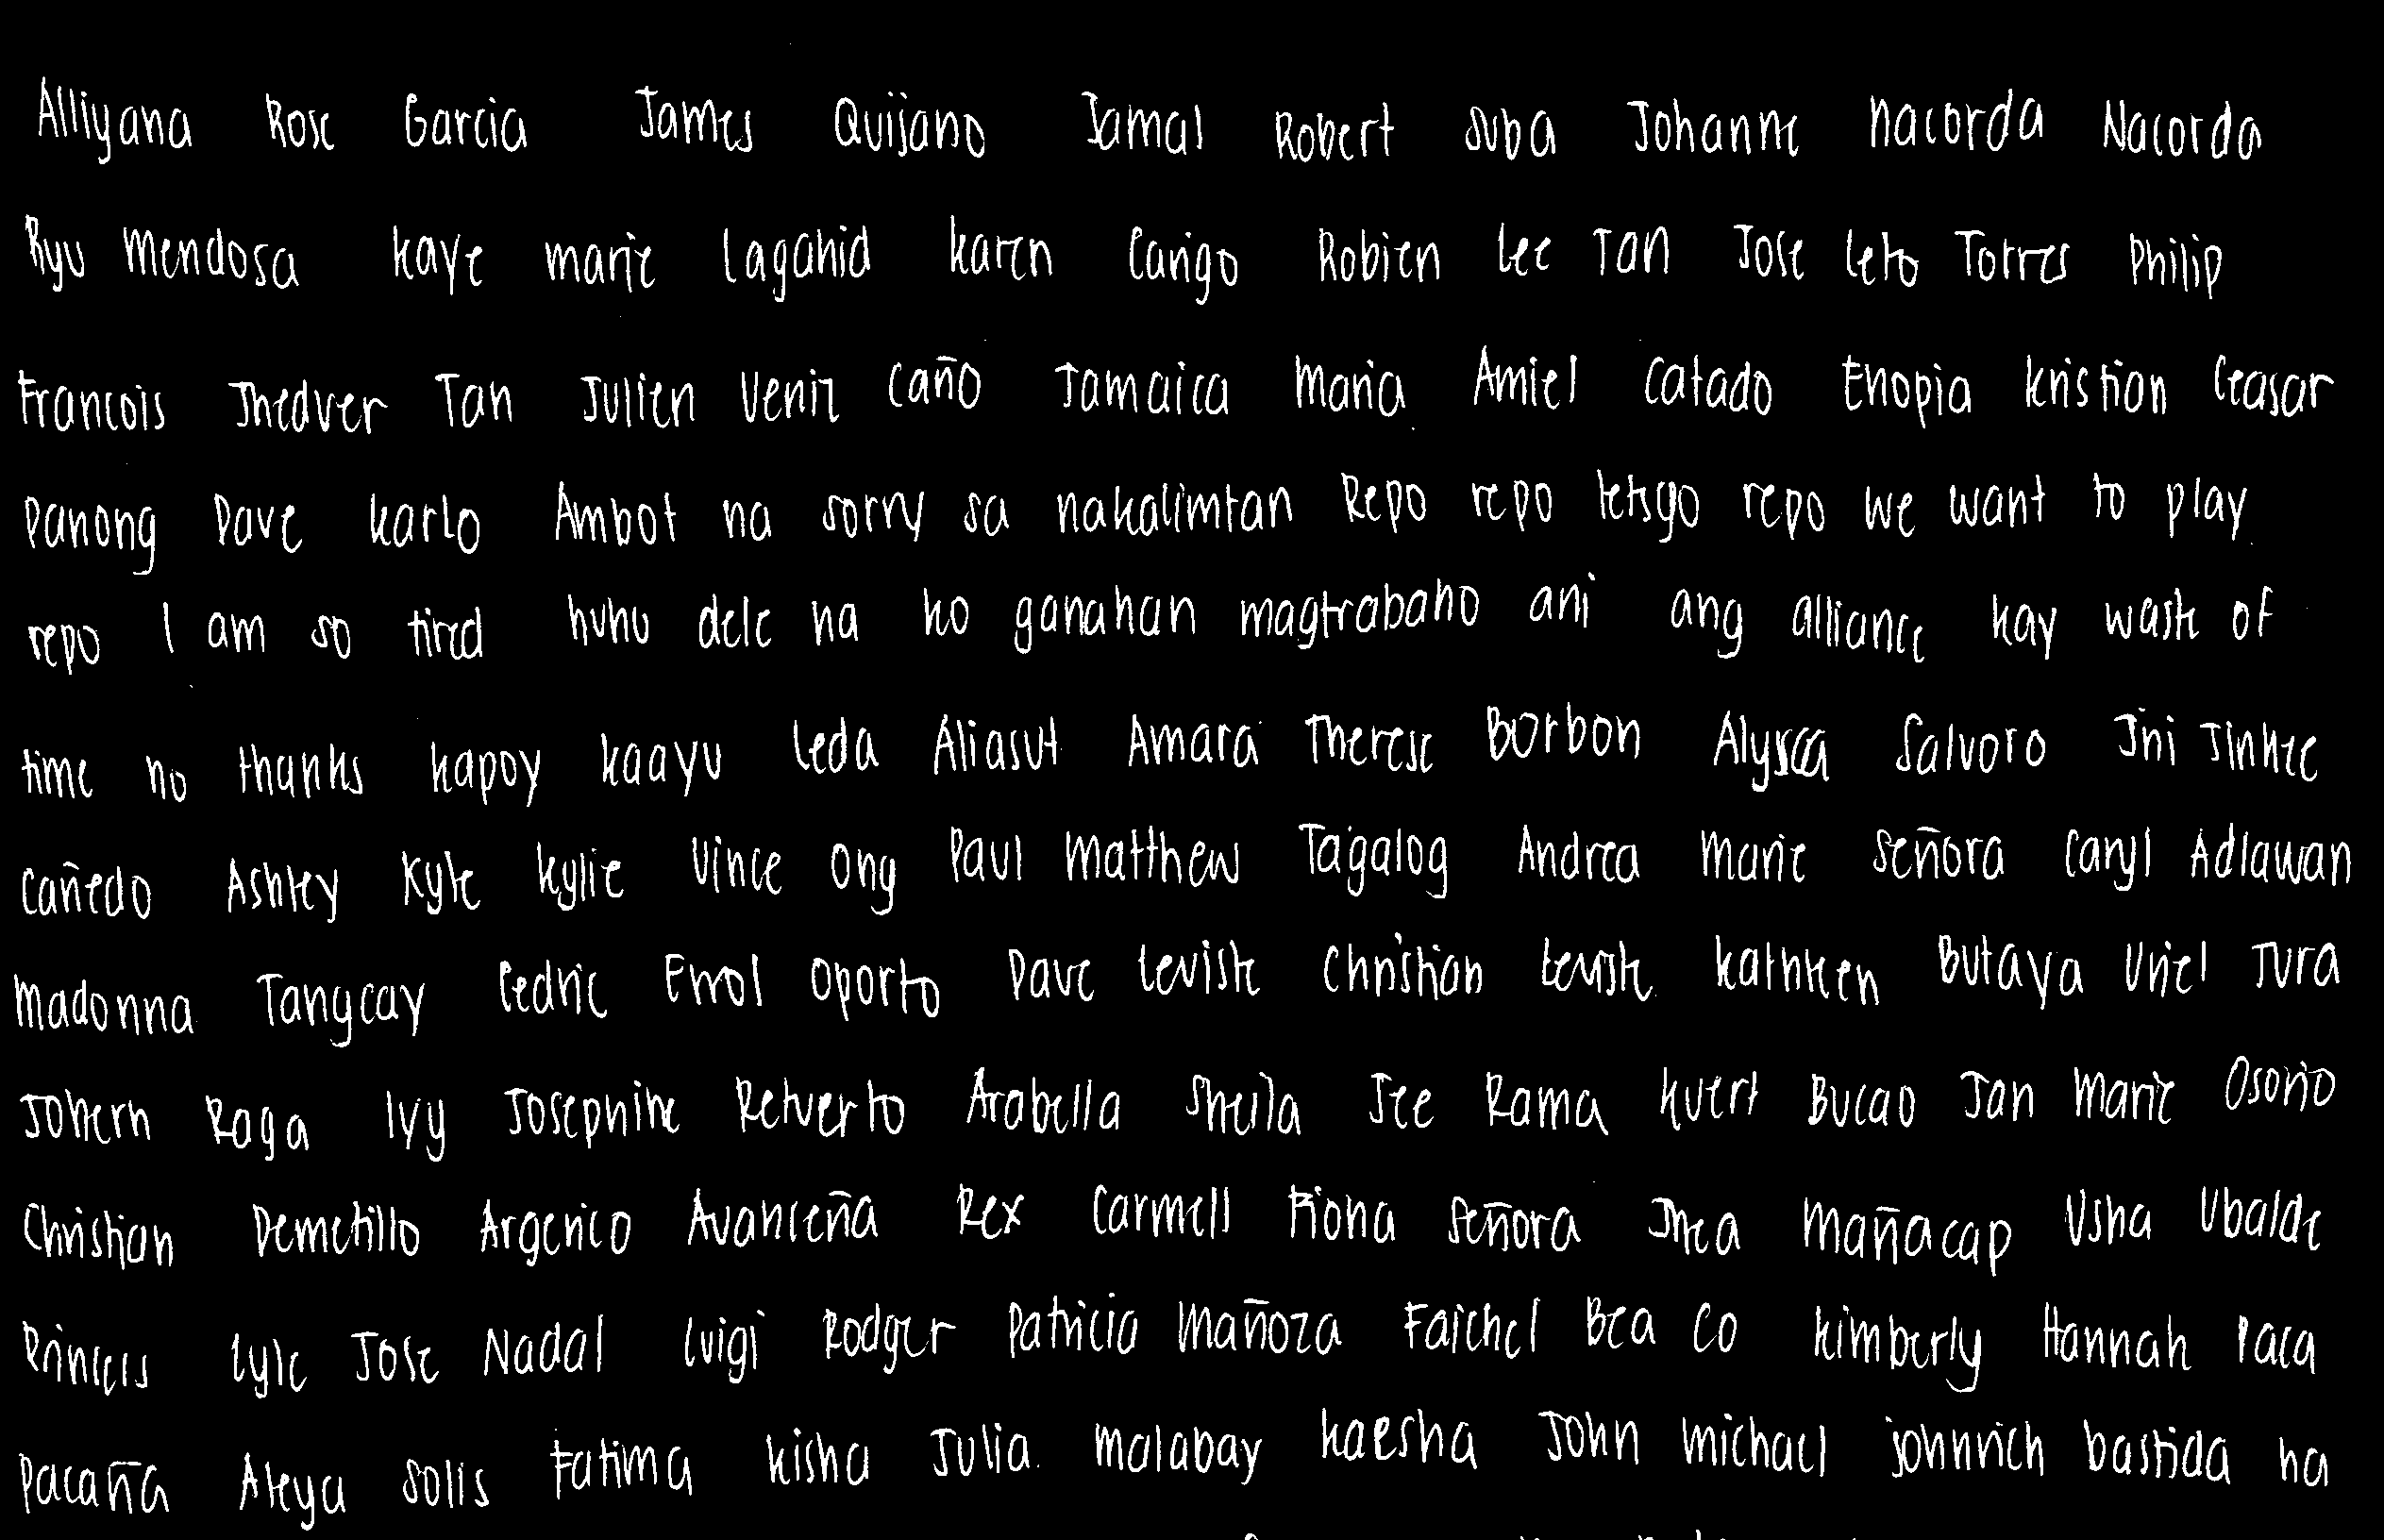 Alliyana Rose Garcia James Quijano Jamal Robert Suba Johanne nacorda Nacorda
Ryu Mendosa kaye marie Lagahid karen Carigo Robien Lee Tan Jose Leto Torres Philip
Francois Jhedver Tan Julien Veniz Caño Jamaica Maria Amiel Catado Enopia kristian Ceasar
Panong Dave karlo Ambot na sorry sa nakalimtan Repo repo letsgo repo we want to play
repo I am so tired huhu dele na ko ganahan magtrabaho ani ang alliance kay waste of
time no thanks kapoy kaayu Leda Aliasut Amara Therese Borbon Alyssa Salvoro Jni Jinkee
Cañedo Ashley Kyle kylie Vince Ong Paul Matthew Tagalog Andrea Marie Señora Caryl Adlawan
Madonna Tangcay Cedric Errol Oporto Dave Leviste Christian Leviste kathleen Butaya Uriel Jura
Johern Raga Ivy Josephine Retuerto Arabella Sheila Jee Rama kuert Bucao Jan Marie Osorio
Christian Demetillo Argerico Avanceña Rex Carmell Fiona Señora Jhea Mañacap Usha Ubalde
Princess Lyle Jose Nadal Luigi Rodger Patricia Mañoza Faichel Bea Co kimberly Hannah Paca
Pacaña Aleya Solis Fatima kisha Julia malabay kaesha John michael johnrich bastida na